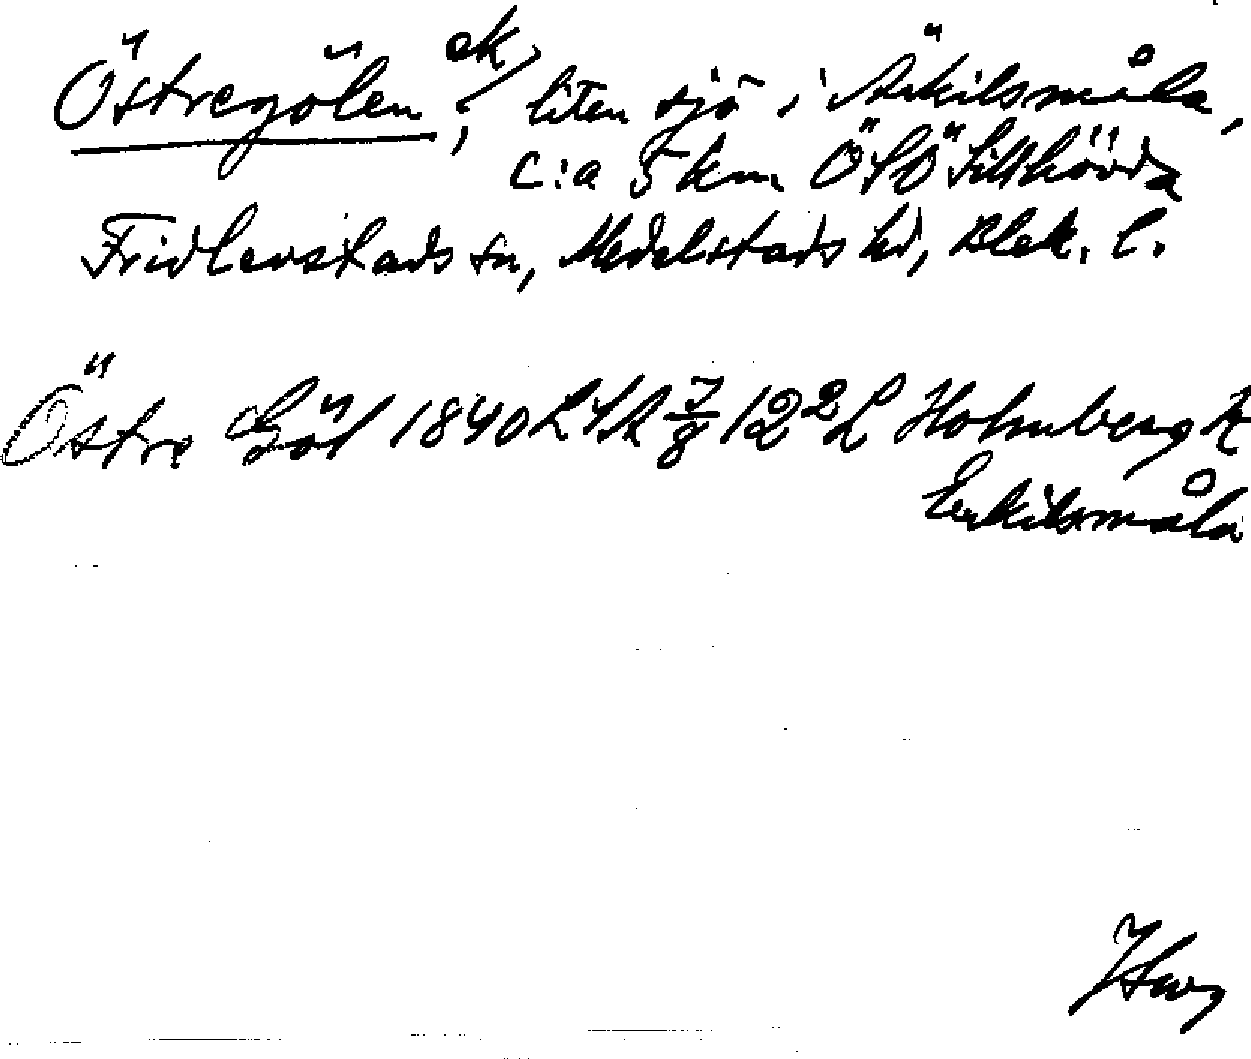 Östregölen ek/, liten sjö i Ärkilsmåla,
c:a 5 km ÖSÖ Tillhövda
Fridlevstads sn, Medelstads hd, Blek. l.
Östre Göl 1840 LSA 7/8 12² L Holmberg K
Erkilsmåla